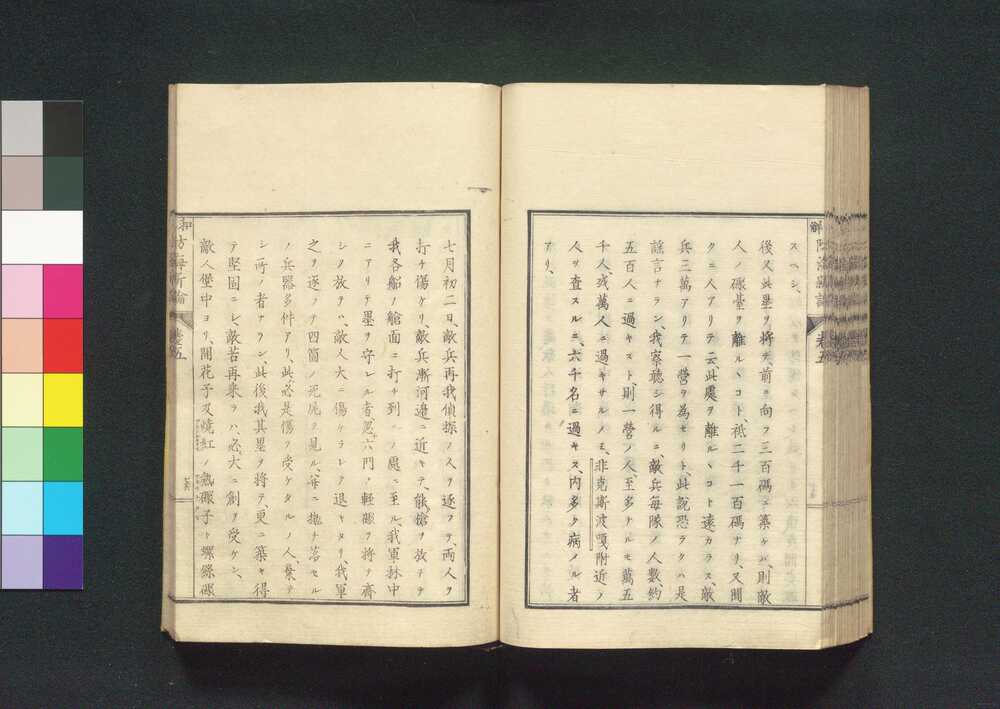 スヘシ、
後又此壘ヲ將テ前ニ向フ三百碼ニ築ケバ、則敵
人ノ礮臺ヲ離ルヽコト、祗二千一百碼ナリ、又聞
クニ人アリテ云、此處ヲ離ルヽコト遠カラス、敵
兵三萬アリテ一營ヲ為セリト、此説恐ラクハ是
謡言ナラン、我察聽シ得ルニ、敵兵毎隊ノ人數、約
五百人ニ過キスト、則一營ノ人、至多ナルモ萬五
千人或萬人ニ過キサルノミ、非克斯波嘎附近ノ
人ヲ査スルニ、六千名ニ過キス、内多ク病ノル者
アリ、
七月初二日、敵兵再我偵探ノ人ヲ逐フテ、両人ヲ
打チ傷ケリ、敵兵漸河邉ニ近キテ、能槍ヲ放チテ
我各船ノ艙面ニ打チ到ルノ處ニ至ル、我軍林中
ニアリテ壘ヲ守レル者、忽六門ノ軽礮ヲ将テ齊
シク放テハ、敵人大ニ傷ケラレテ退キタリ、我軍
之ヲ逐フテ四箇ノ死屍ヲ見ル、并ニ抛チ落セル
ノ兵器多件アリ、此必是傷ヲ受ケタルノ人、棄テ
シ所ノ者ナラン、此後我其壘ヲ将テ、更ニ築キ得
テ堅固ニシ、敵若再来ラハ、必大ニ創ヲ受ケン、
敵人堡中ヨリ、開花子及燒紅ノ熱礮子ト螺絲礮
防海新論
卷五